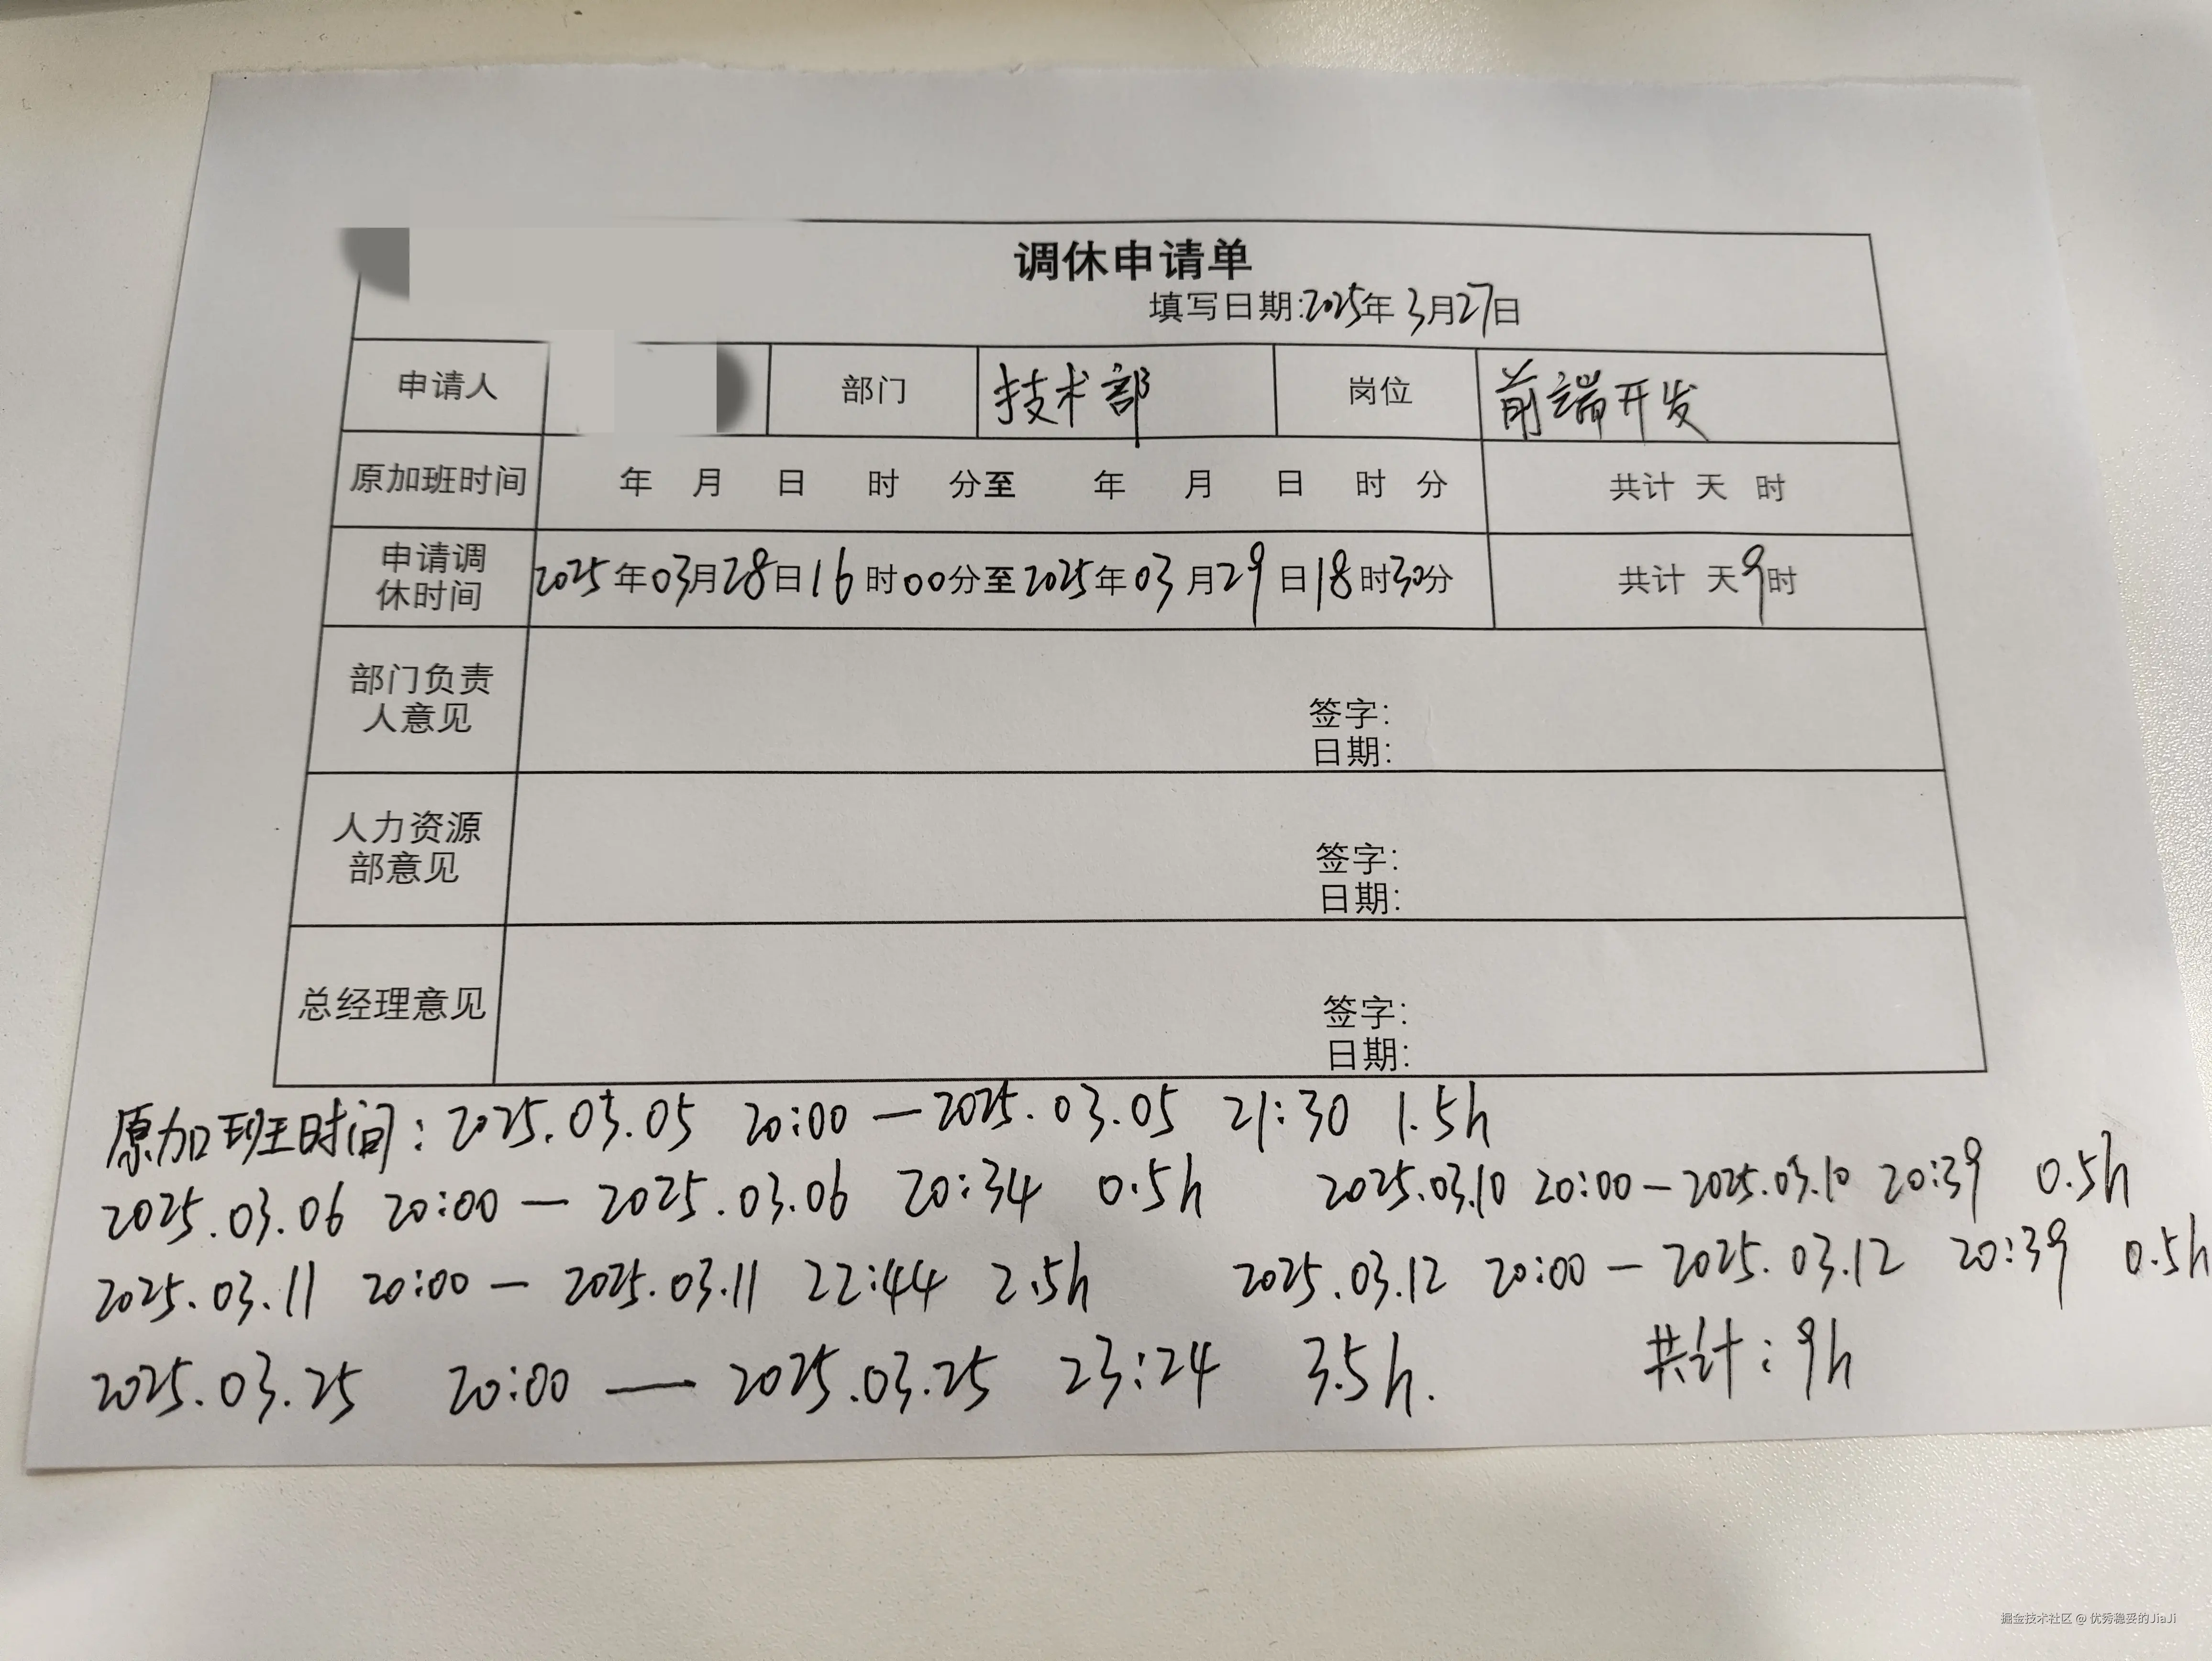 调休申请单
填写日期:2025年3月27日
申请人 部门 技术部 岗位 前端开发
原加班时间 年 月 日 时 分至 年 月 日 时 分 共计 天 时
申请调休时间 2025年03月28日16时00分至2025年03月29日18时30分 共计 天9时
部门负责人意见
签字:
日期:
人力资源部意见
签字:
日期:
总经理意见
签字:
日期:
原加班时间:2025.03.05 20:00—2025.03.05 21:30 1.5h
2025.03.06 20:00—2025.03.06 20:34 0.5h 2025.03.10 20:00—2025.03.10 20:39 0.5h
2025.03.11 20:00—2025.03.11 22:44 2.5h 2025.03.12 20:00—2025.03.12 20:39 0.5h
2025.03.25 20:00—2025.03.25 23:24 3.5h. 共计:9h
掘金技术社区 @ 优秀稳妥的JiaJi